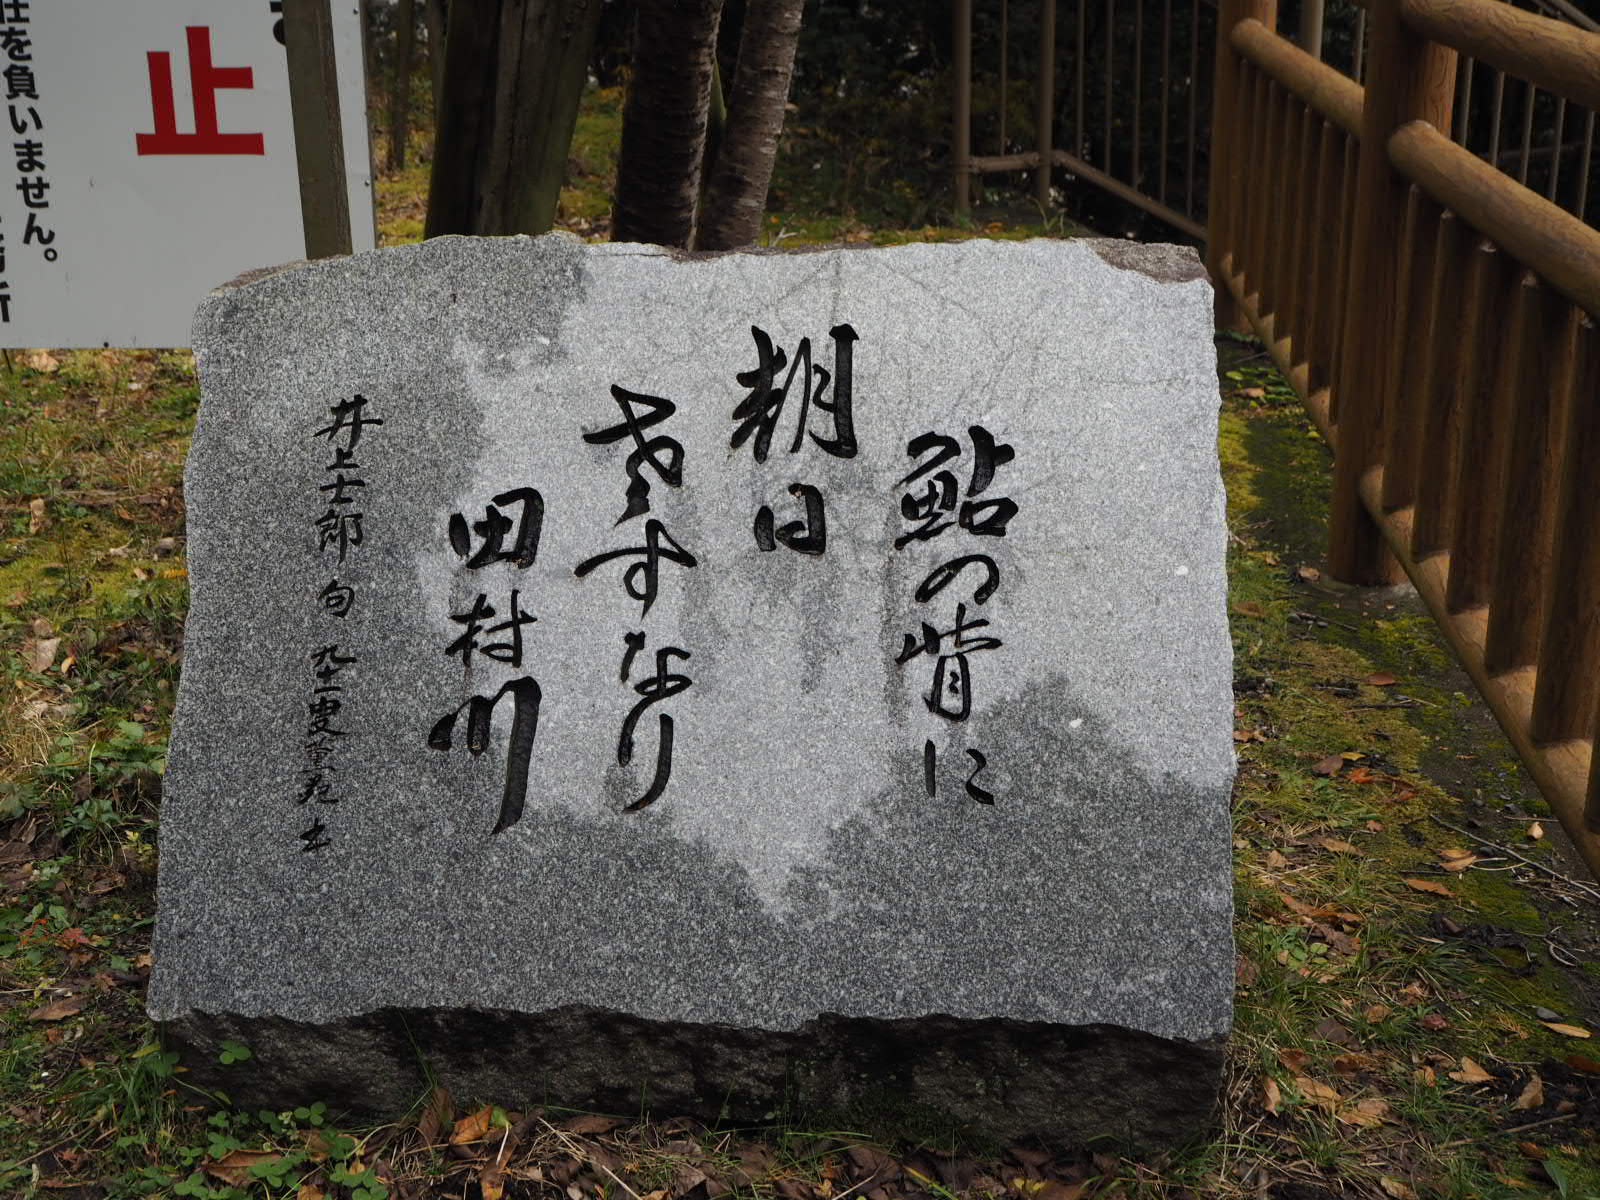 鮎の背に
朝日
さすなり
田村川
井上士郎 句 九十一叟
止
任を負いません。